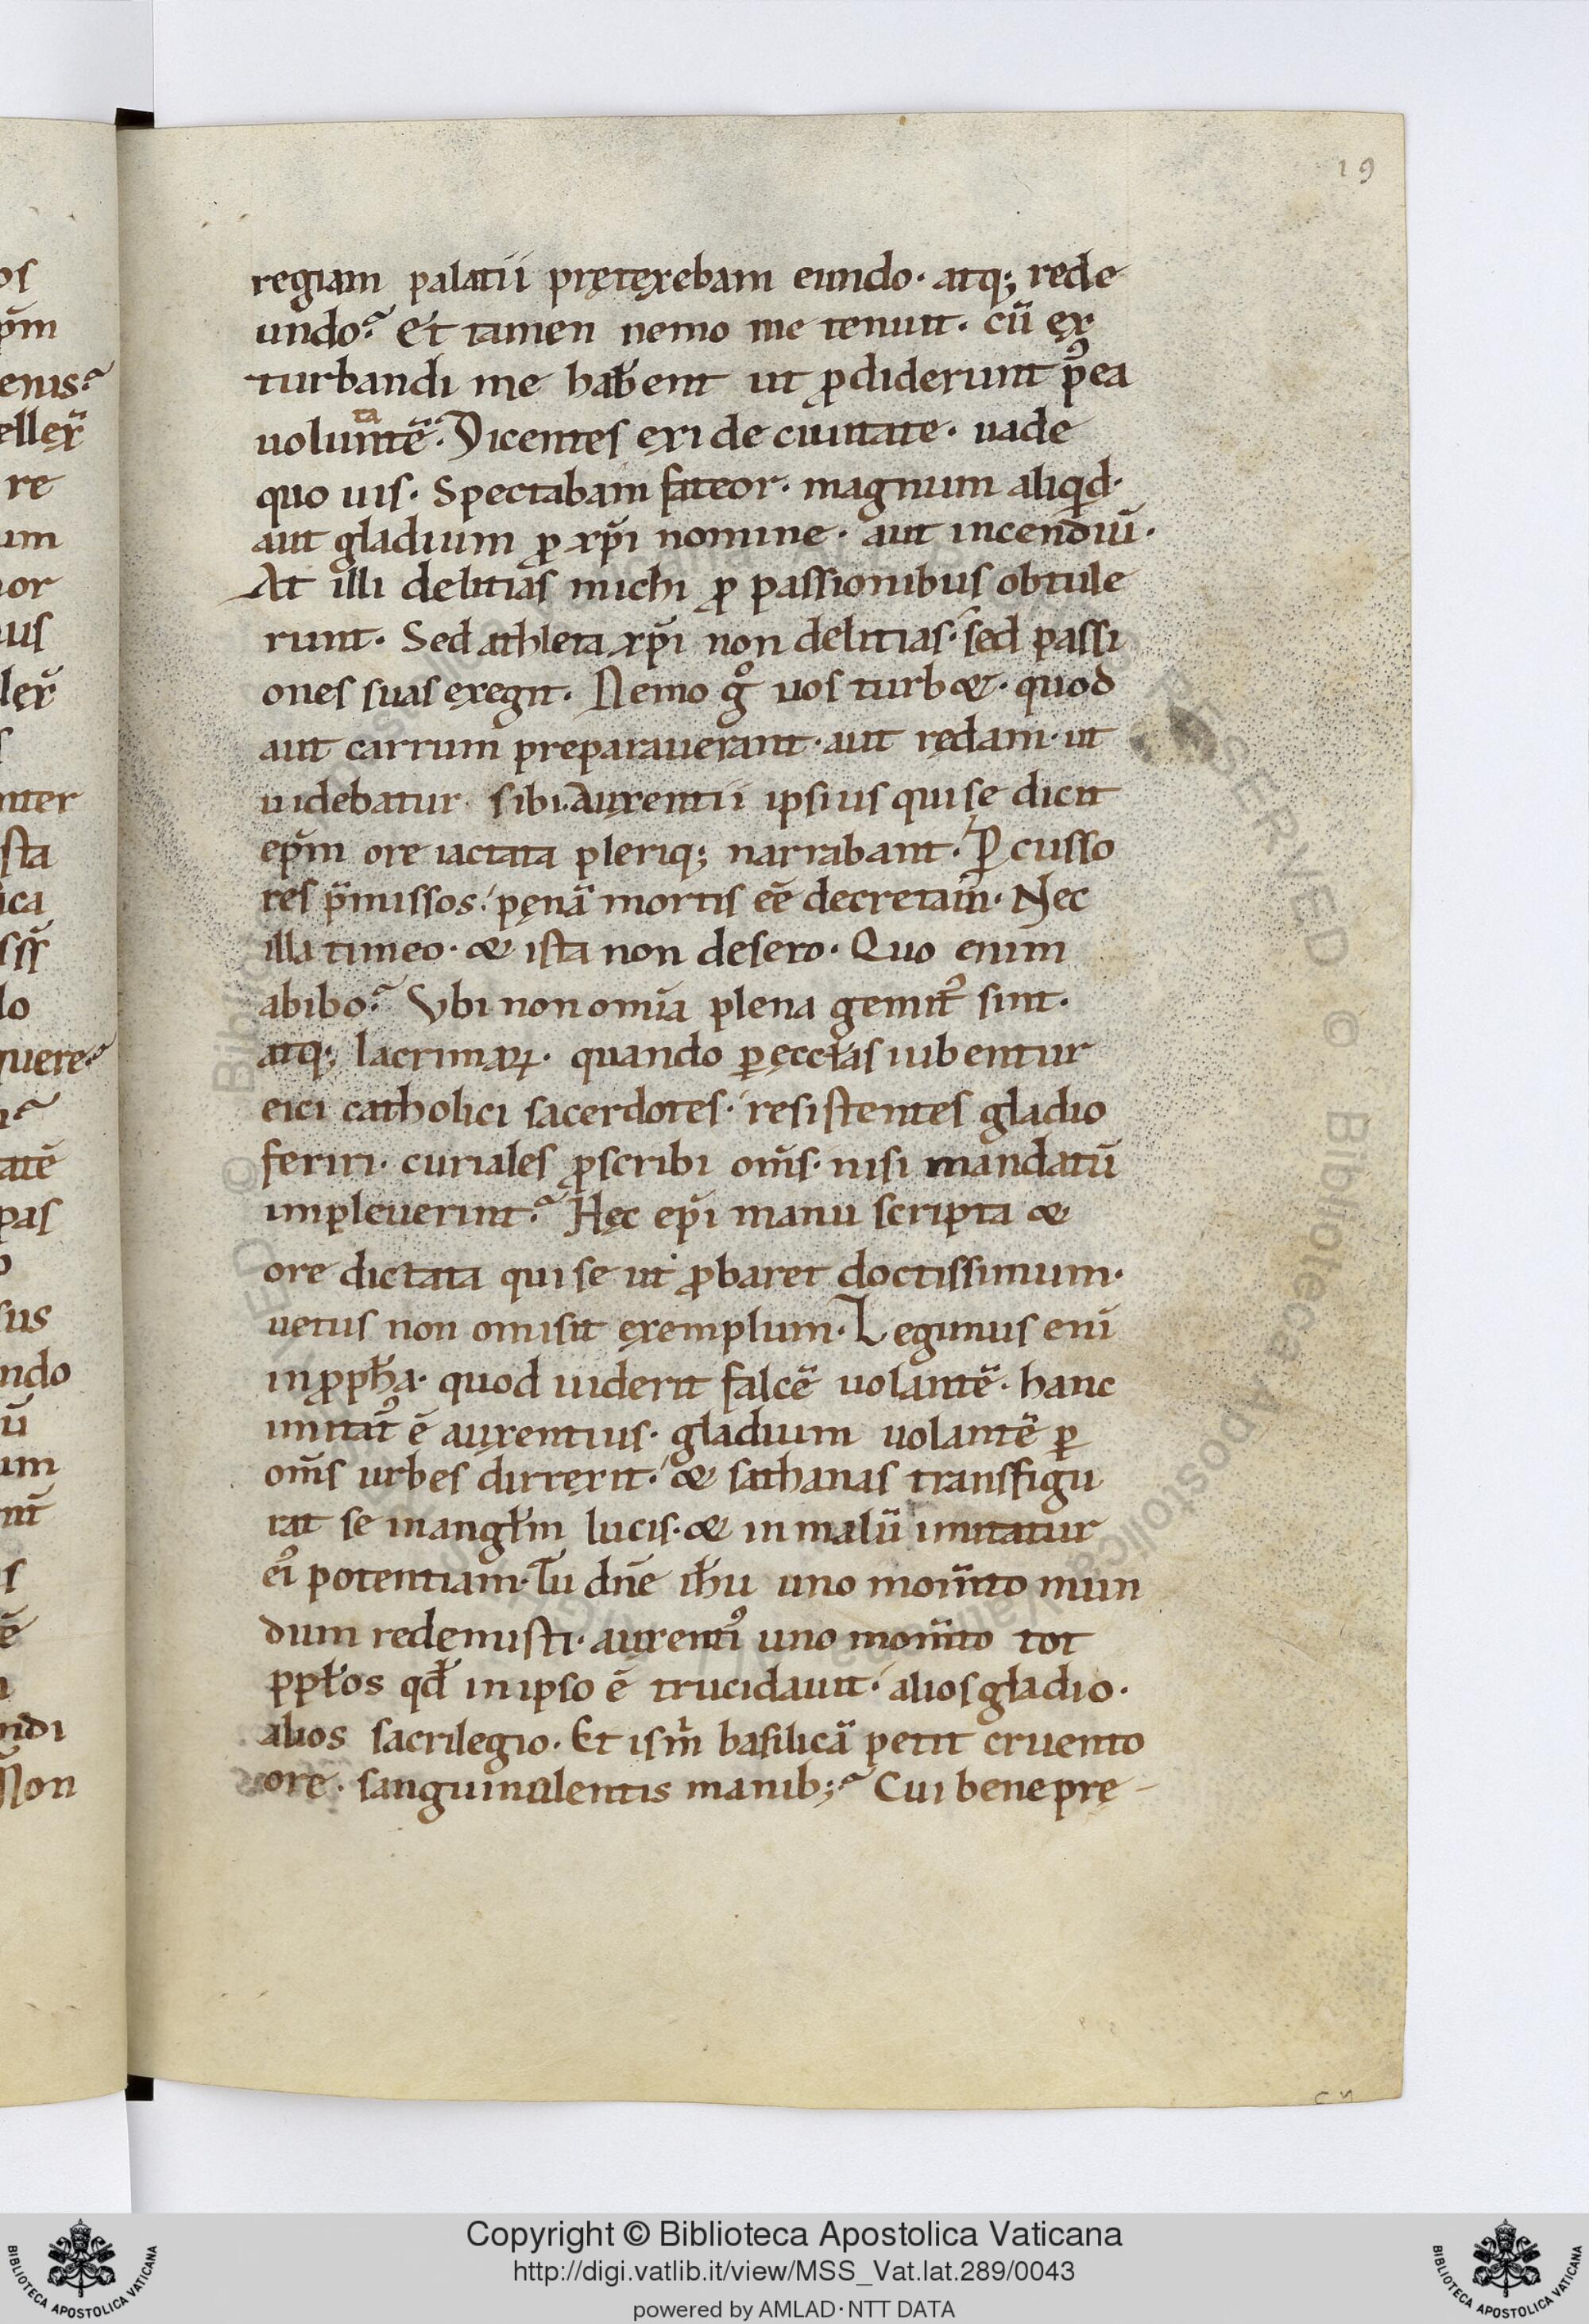 19
regiam palatii pretęxebam eundo· atq; rede
undo? Et tamen nemo me tenuit· cū ex
turbandi me habēnt ut ꝓdiderunt p̃ea
uoluntatē· Dicentes exi de ciuitate· uade
quo uis· Spectabam fateor· magnum aliqid·
aut gladium ꝓ xp̄i nomine· aut incendiū·
At illi delitias michi ꝓ passionibus obtule
runt· Sed athleta xp̄i non delitias· sed passi
ones suas exegit· Nemo gͦ uos turb&· quod
aut carrum preparauerant· aut redam· ut
uidebatur sibi· Auxentii ipsius qui se dicit
ep̄m ore iactata pleriq; narrabant· ꝑcusso
res p̄missos· penā mortis eē decretam· Nec
illa timeo· & ista non desero· Quo enim
abibo? Vbi non om̄ia plena gemitꝰ sint·
atq; lacrimaꝝ· quando ꝑ ęcctas iubentur
eici catholici sacerdotes· resistentes gladio
feriri· curiales ꝓscribi om̄s· nisi mandatū
impleuerint? Hęc ep̄i manu scripta &
ore dictata qui se ut ꝓbaret doctissimum·
uetus non omisit exemplum· Legimus eni
in ꝓpħa· quod uiderit falcē uolantē· hanc
imitatꝰ ē auxentius· gladium uolantē ꝑ
om̄s urbes direxit· & sathanas transfigu
rat se in angłm lucis· & in malū imitatur
eiꝰ potentiam· Tu dn̄e ih̄u uno mom̄to mun
dum redemisti· auxentiꝰ uno mom̄to tot
ppłos qd̄ in ipso ē trucidauit· alios gladio·
alios sacrilegio· Et is m̄ basilicā petit cruento
ore· sanguinulentis manib;? Cui bene prę
Copyright © Biblioteca Apostolica Vaticana
http://digi.vatlib.it/view/MSS_Vat.lat.289/0043
powered by AMLAD·NTT DATA
BIBLIOTECA APOSTOLICA VATICANA
BIBLIOTECA APOSTOLICA VATICANA